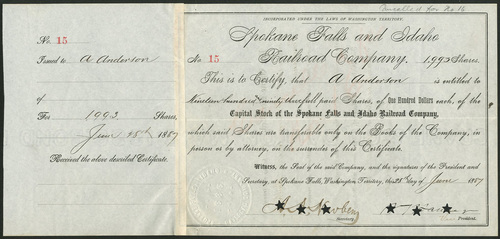 Cancelled for No 16
INCORPORATED UNDER THE LAWS OF WASHINGTON TERRITORY.
Spokane Falls and Idaho
Railroad Company.
No. 15
1,993 Shares.
This is to Certify, that A Anderson is entitled to
Nineteen hundred ninety three full paid Shares, of One Hundred Dollars each, of the
Capital Stock of the Spokane Falls and Idaho Railroad Company,
which said Shares are transferable only on the Books of the Company, in
person or by attorney, on the surrender of this Certificate.
Witness, the Seal of the said Company, and the signatures of the President and
Secretary, at Spokane Falls, Washington Territory, this 25th day of June 1887
Secretary.
President.
No. 15
Issued to A Anderson
of
For 1993 Shares,
June 25th 1887
Received the above decided Certificate.